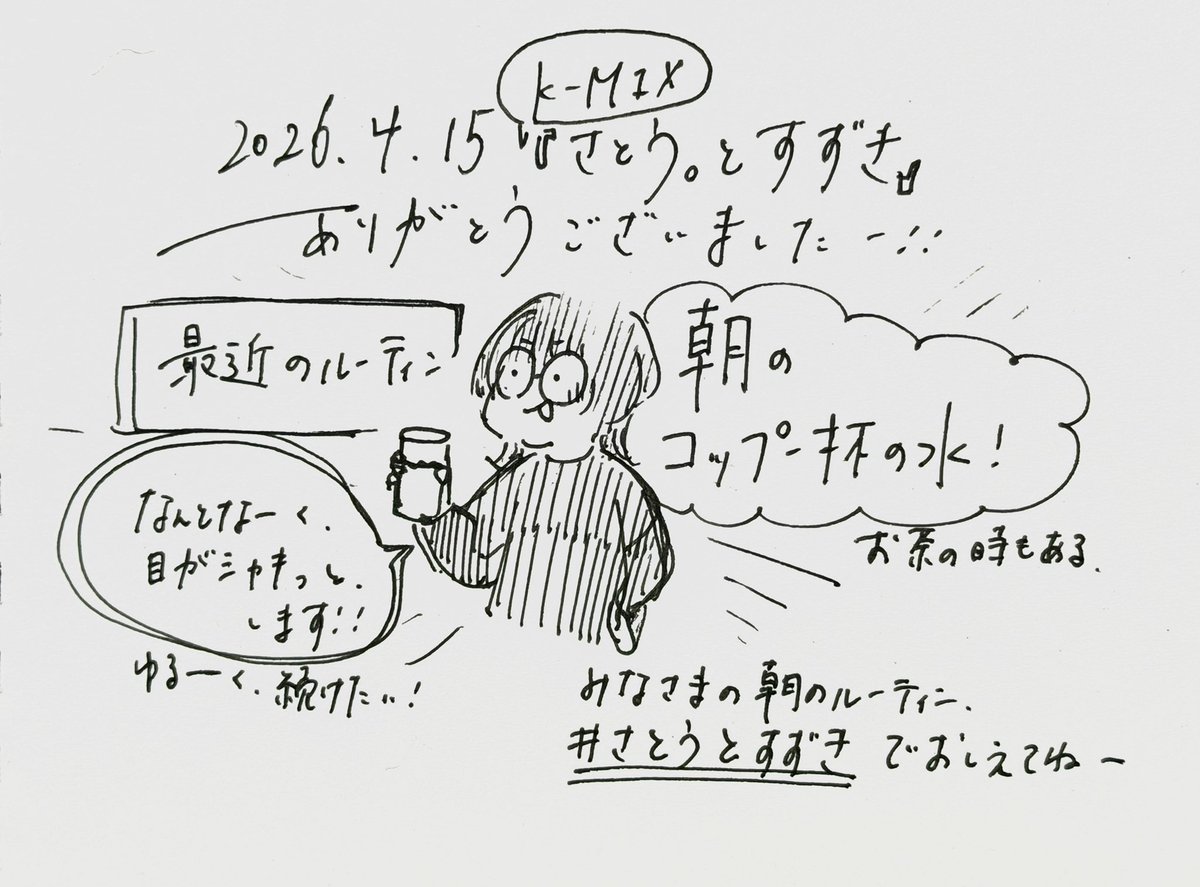 K-MIX
2026.4.15『さとう。とすずき』
ありがとうございましたー!!
最近のルーティン
朝の
コップ一杯の水!
お茶の時もある.
なんとなーく、
目がシャキっと、
します!!
ゆるーく、続けたい!
みなさまの朝のルーティン、
#さとうとすずき でおしえてねー